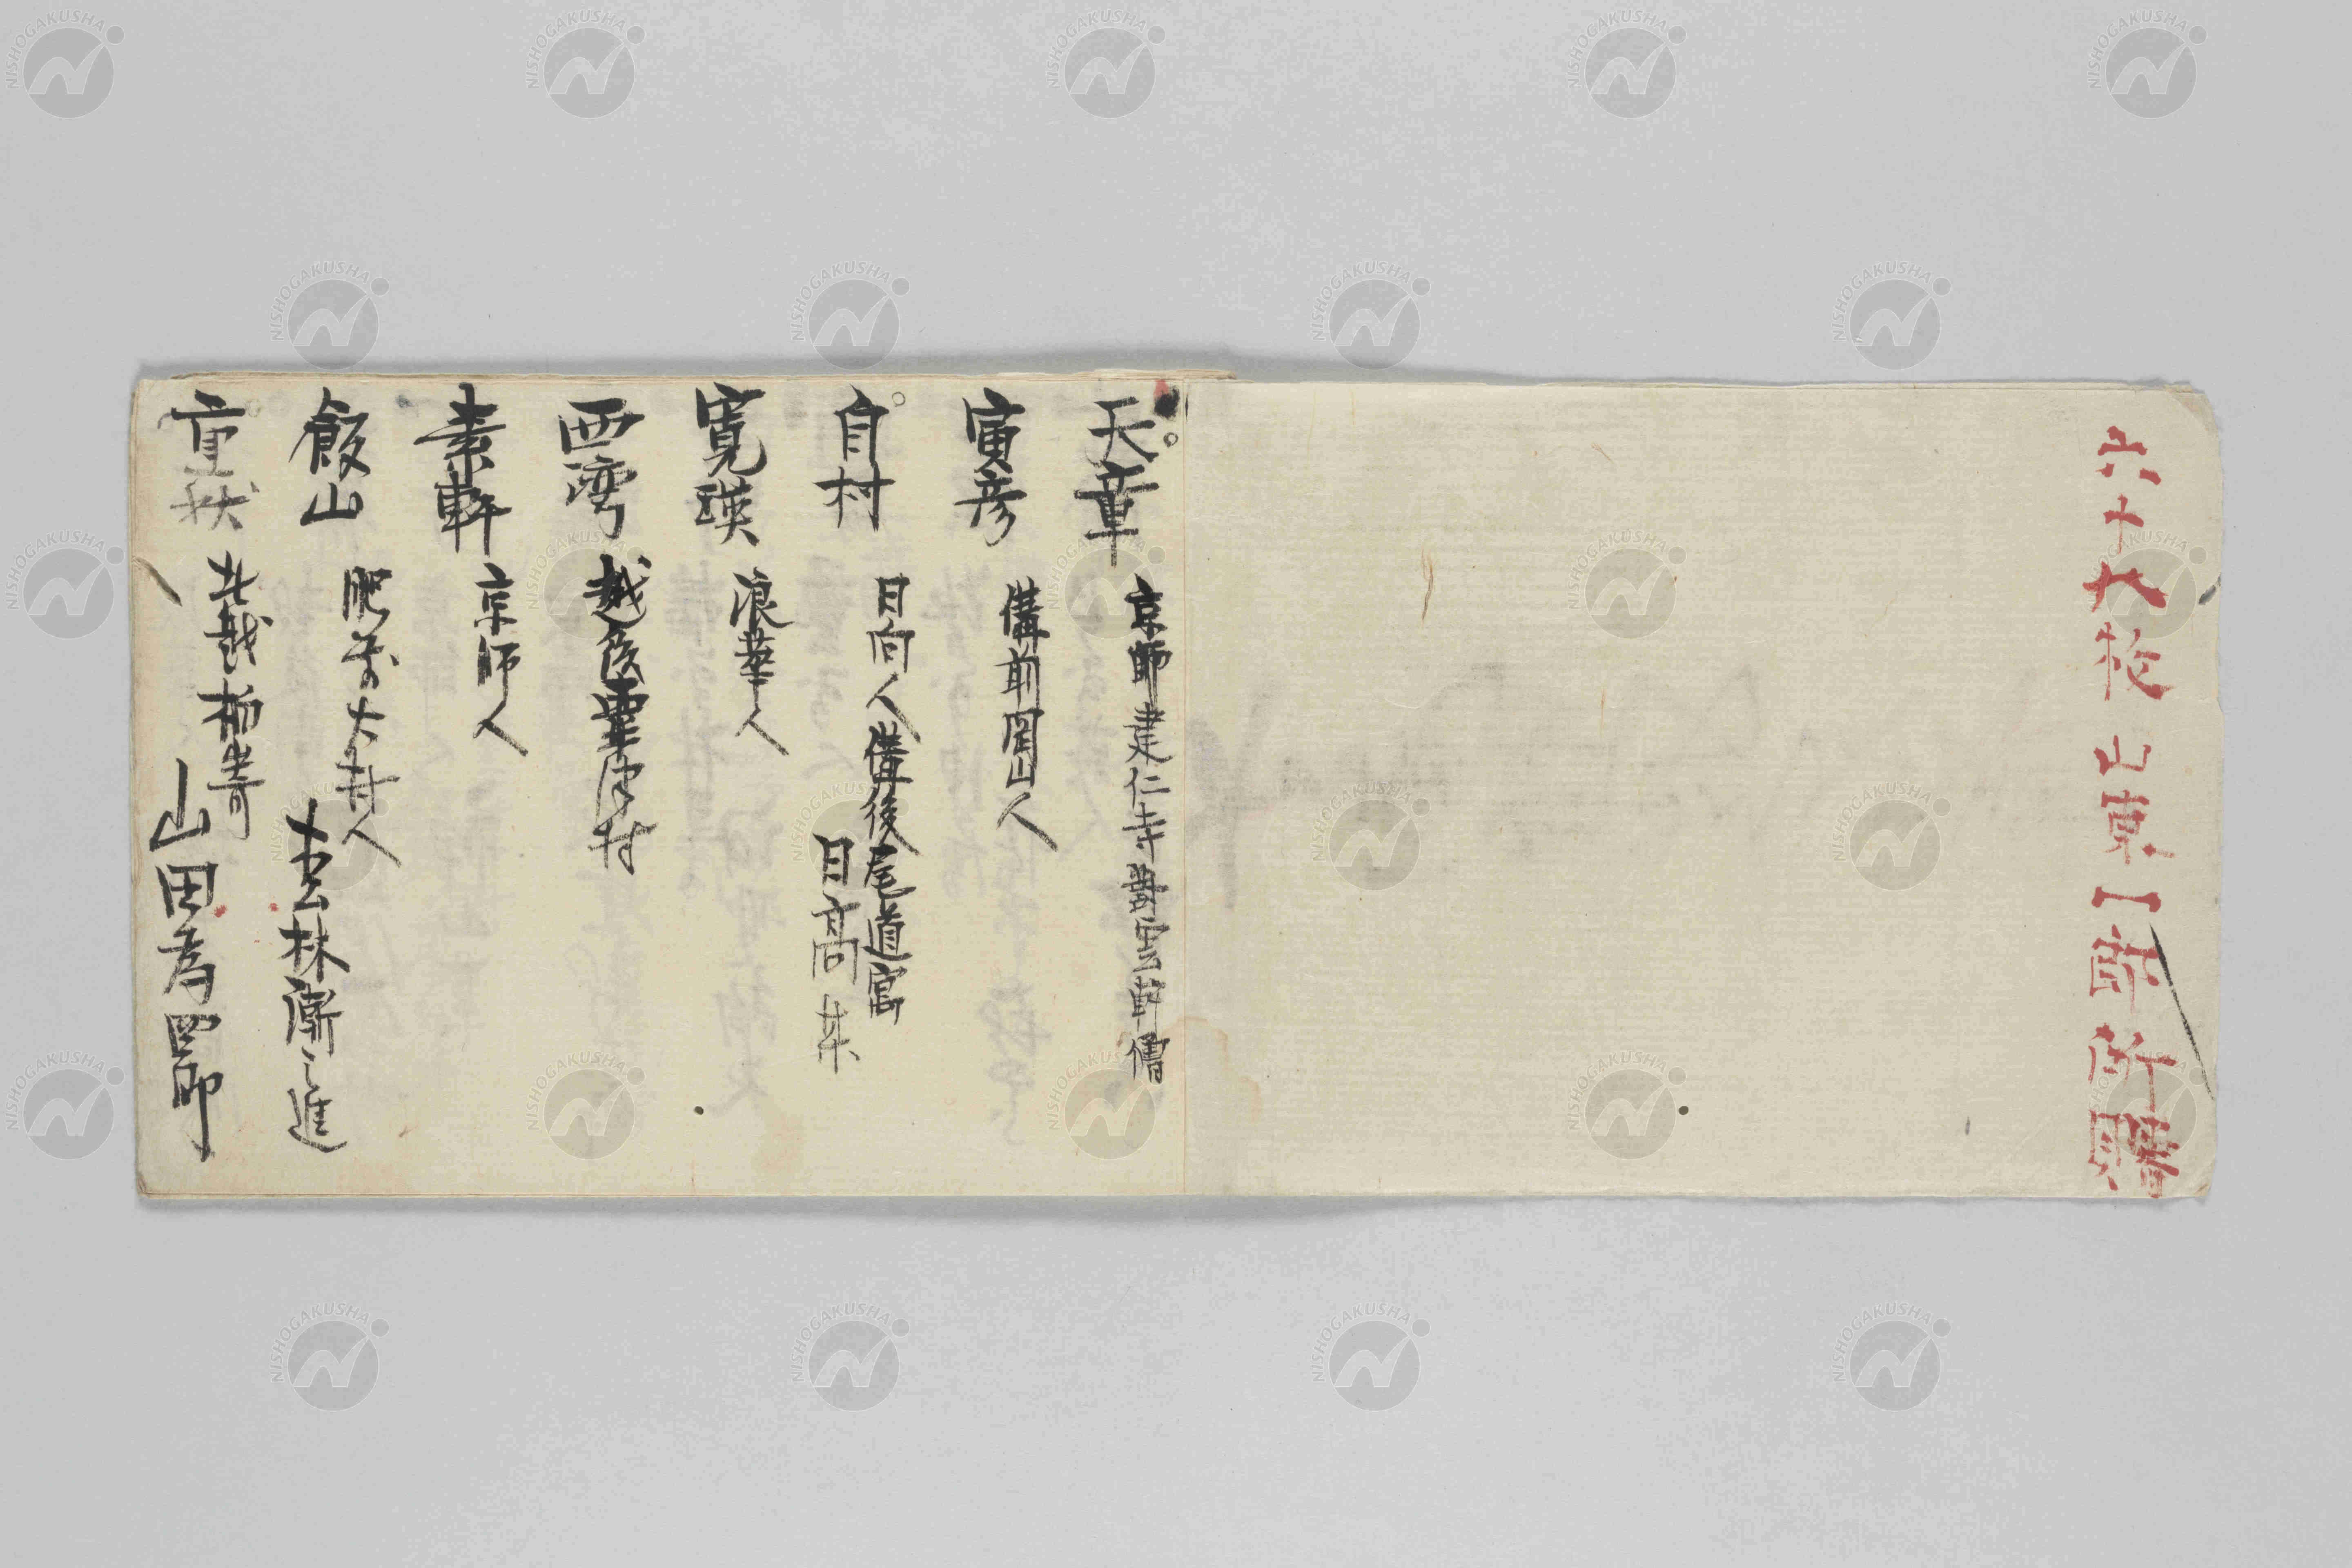 六十八枚 山東一郎所贈
天章 京師建仁寺 雲軒僧
寅彦 備前岡山人
自村 日向人備後尾道寓 日高某
寛瑛 浪華人
西湾 越後粟津村
素軒 京師人
飯山 肥前大村人 松林漸之進
重秋 北越柏崎 山田為四郎
NISHOGAKUSHA